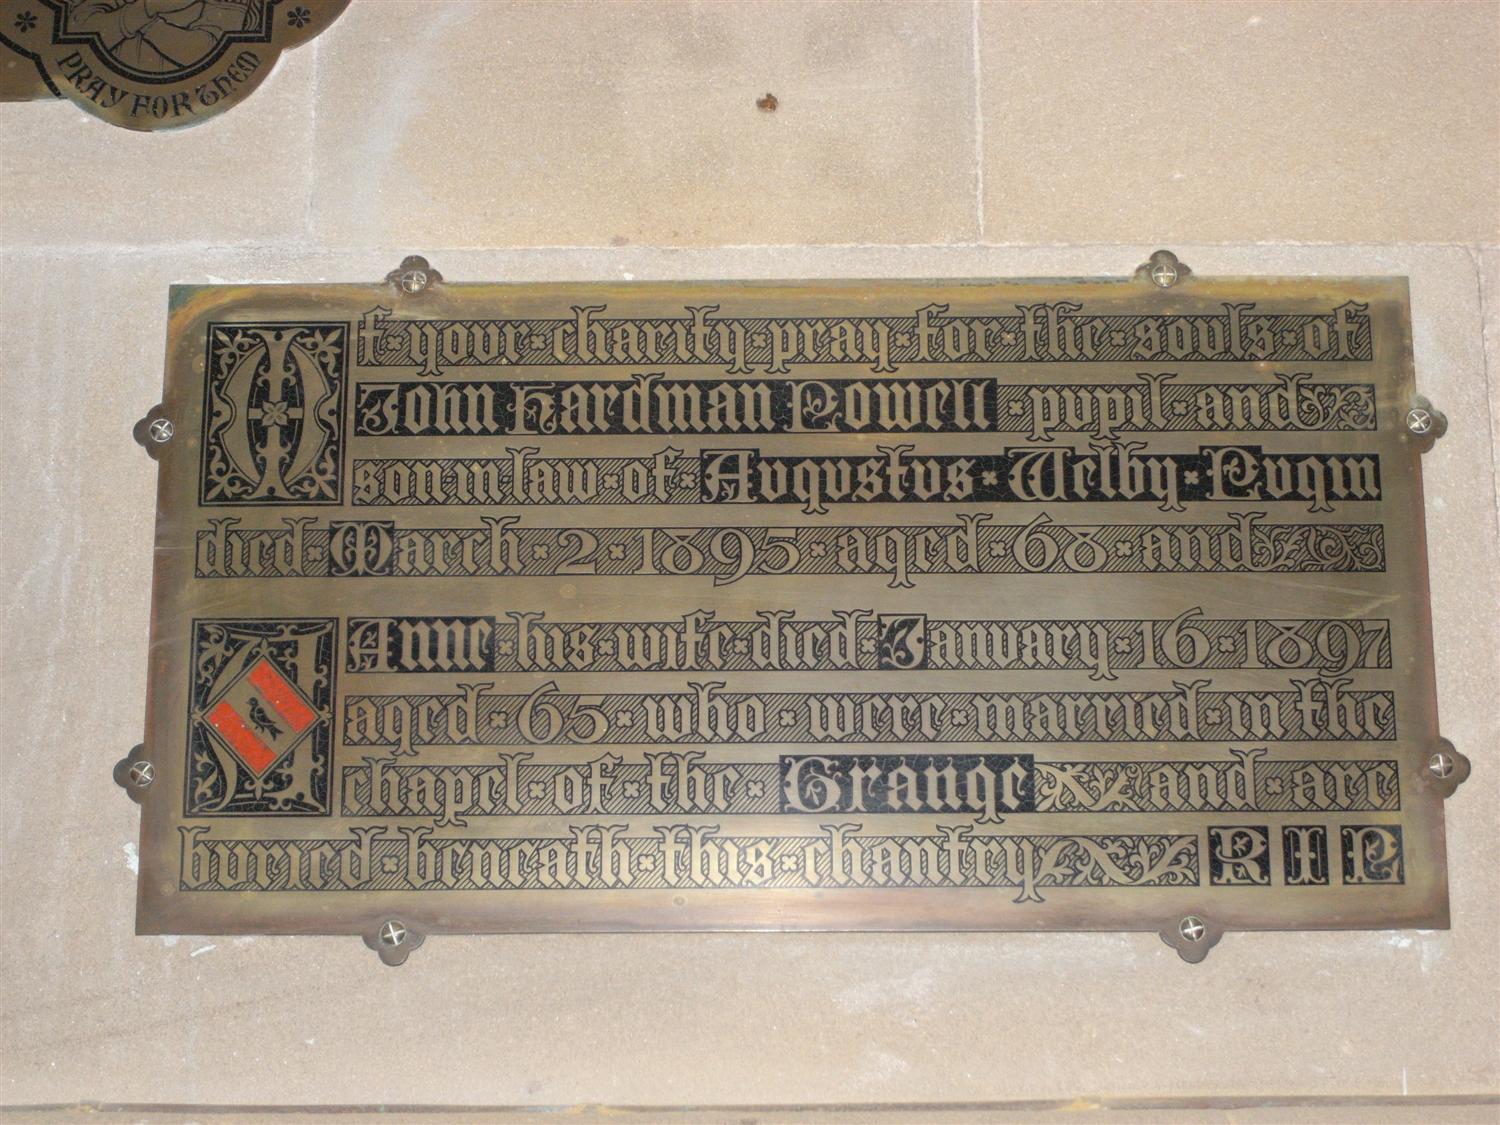 PRAY FOR THEM
Of · your · charity · pray · for · the · souls · of
John Hardman Powell · pupil · and
son · in · law · of · Augustus · Welby · Pugin
died · March · 2 · 1895 · aged · 68 · and
Anne · his · wife · died · January · 16 · 1897
aged · 65 · who · were · married · in · the
chapel · of · the · Grange and · are
buried · beneath · this · chantry R I P